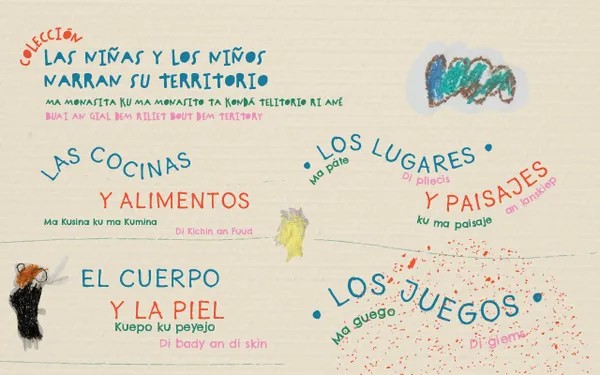 COLECCIÓN
LAS NIÑAS Y LOS NIÑOS
NARRAN SU TERRITORIO
MA MONASITA KU MA MONASITO TA KONDA TELITORIO RI ANÉ
BUAI AN GIAL DEM RILIET BOUT DEM TERITORY
LAS COCINAS
Y ALIMENTOS
Ma Kusina ku ma Kumina
Di Kichin an Fuud
• LOS LUGARES •
Ma páte
Di pliecis
Y PAISAJES
ku ma paisaje
an lanskiep
EL CUERPO
Y LA PIEL
Kuepo ku peyejo
Di bady an di skin
• LOS JUEGOS •
Ma guego
Di giems